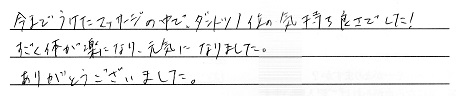 今までうけたマッサージの中で、ダントツ1位の気持ち良さでした!
すごく体が楽になり、元気になりました。
ありがとうございました。